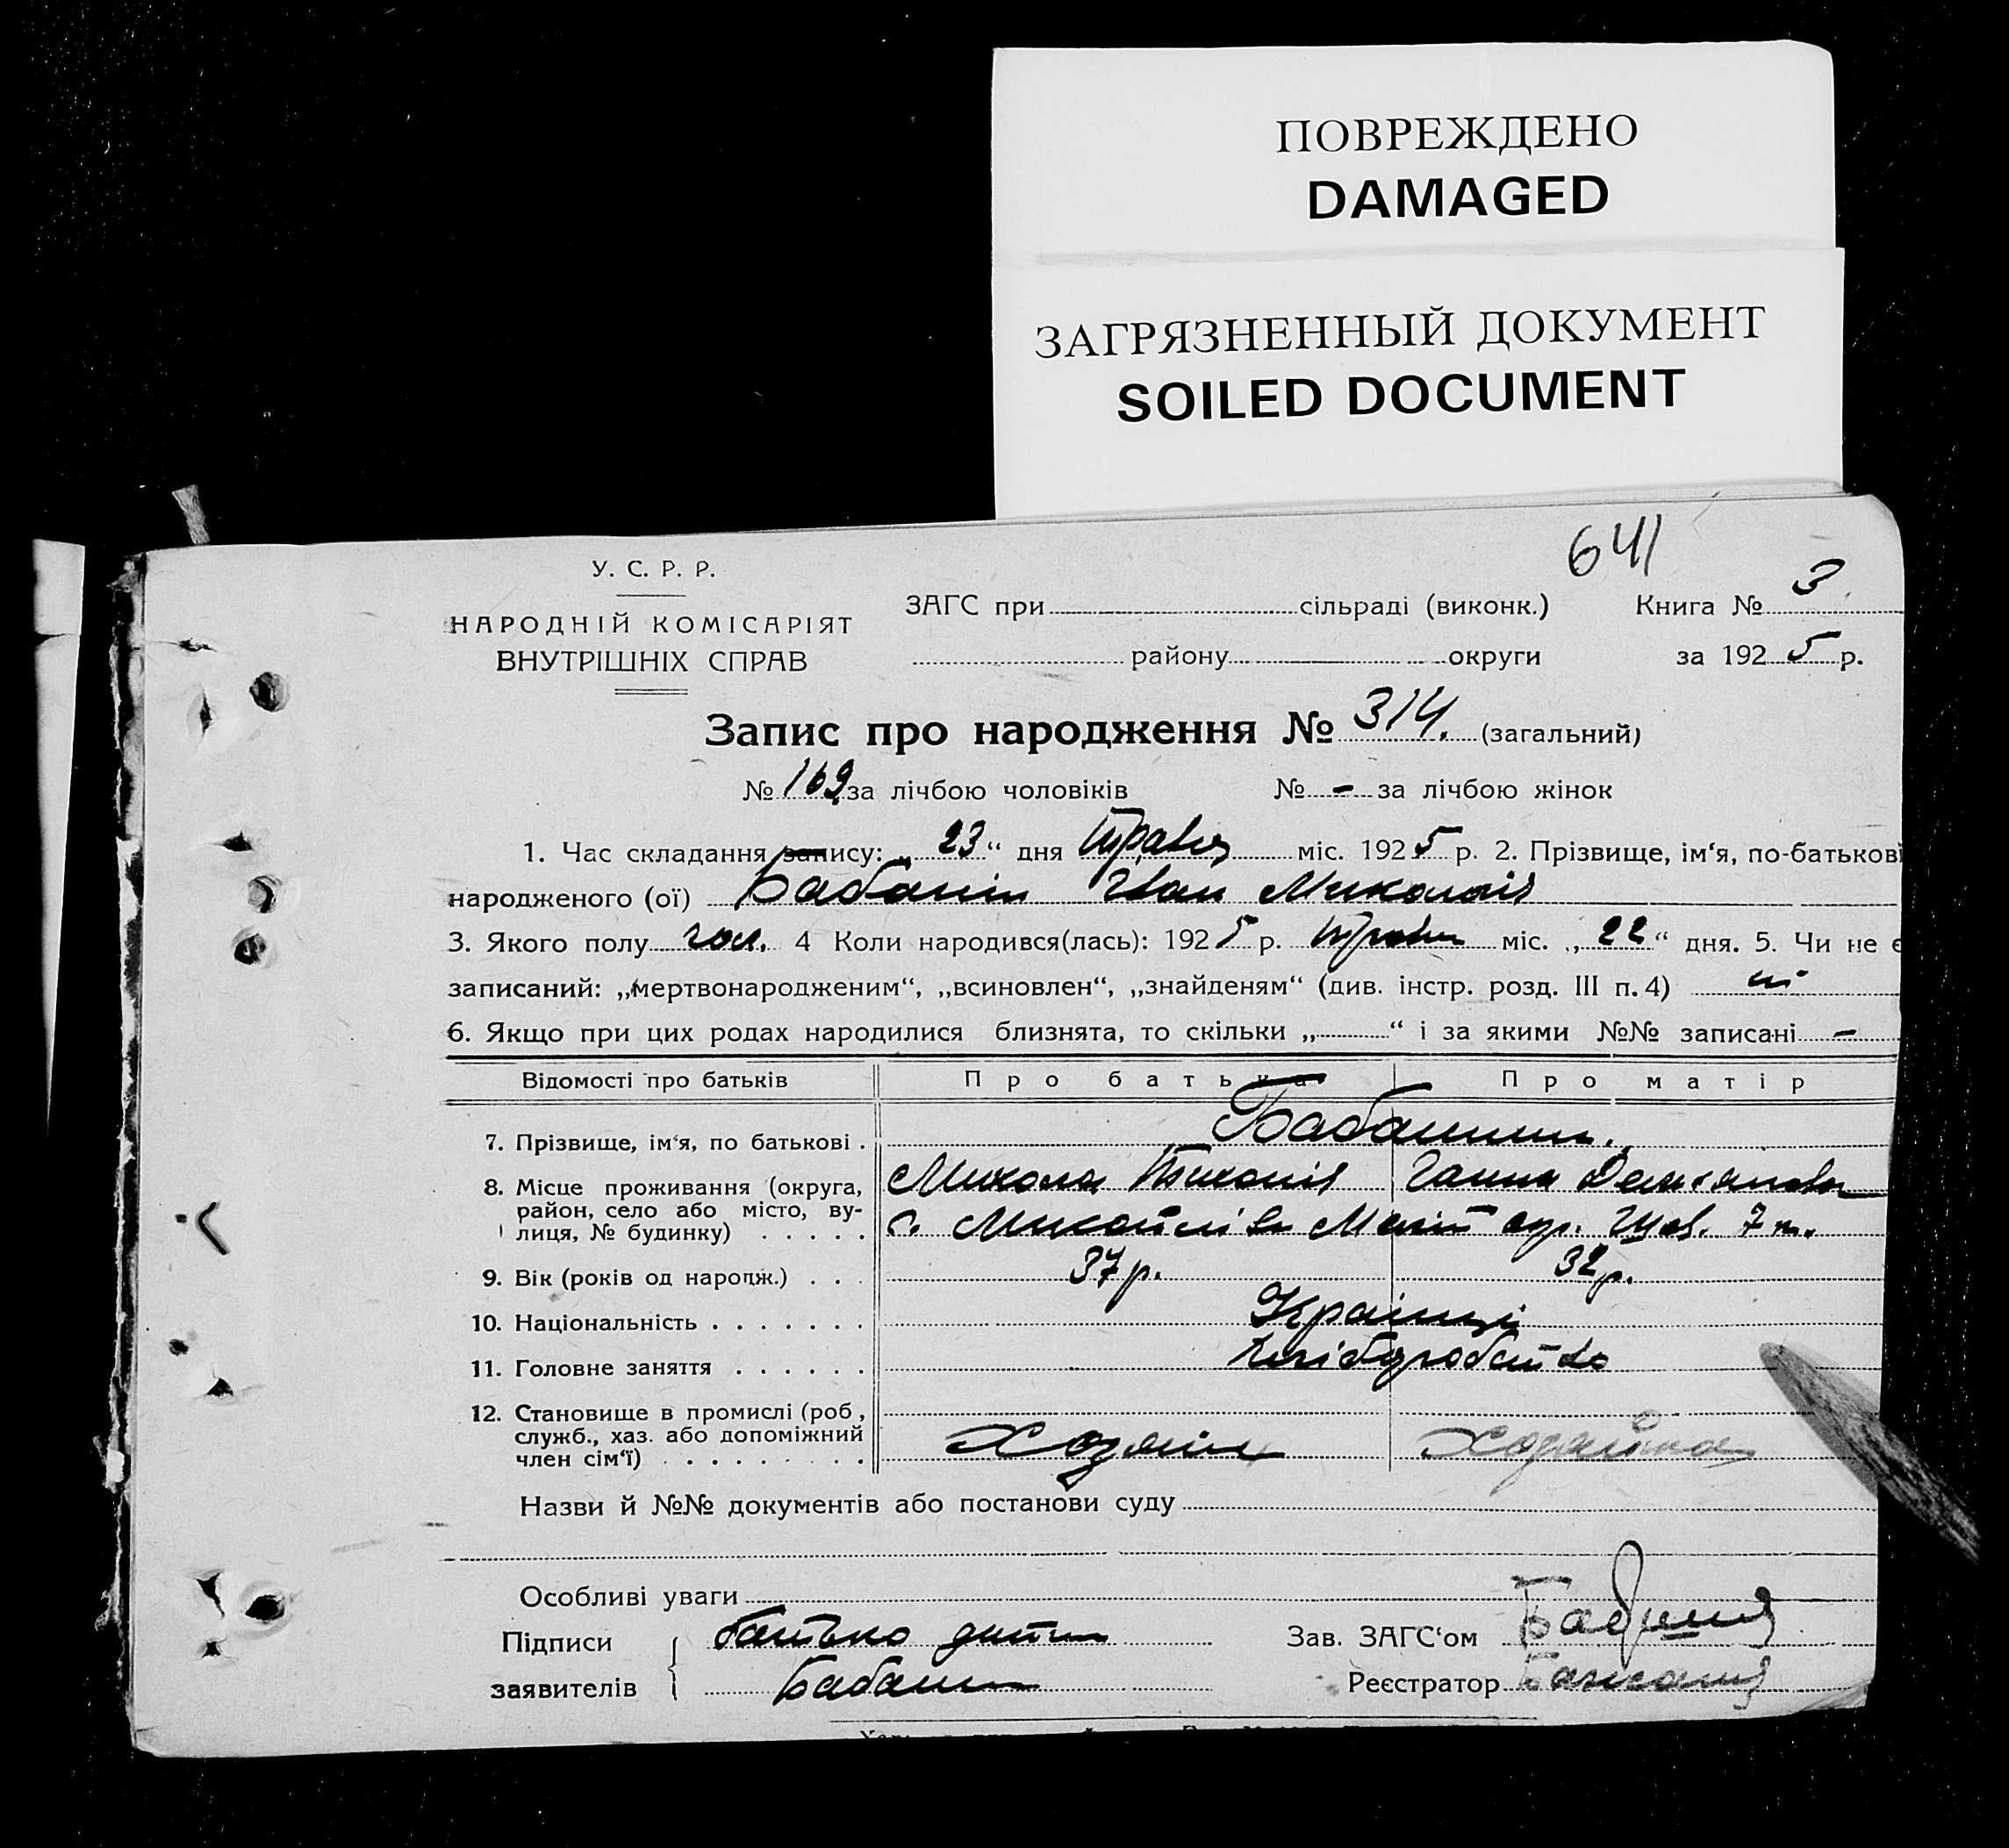 ПОВРЕЖДЕНО
DAMAGED
ЗАГРЯЗНЕННЫЙ ДОКУМЕНТ
SOILED DOCUMENT
641
У. С. Р. Р.
НАРОДНІЙ КОМІСАРІЯТ
ВНУТРІШНІХ СПРАВ
ЗАГС при сільраді (виконк.) Книга № 3
району округи за 1925 р.
Запис про народження № 314. (загальний)
№ 169 за лічбою чоловіків № - за лічбою жінок
1. Час складання запису: „23“ дня Травня міс. 1925 р. 2. Прізвище, ім‘я, по-батькові
народженого (ої) Бабанін Іван Миколаїв
3. Якого полу чол. 4 Коли народився(лась): 1925 р. Травня міс. „22“ дня. 5. Чи не є
записаний: „мертвонародженим“, „всиновлен“, „знайденям“ (див. інстр. розд. III п. 4) ні
6. Якщо при цих родах народилися близнята, то скільки „ “ і за якими №№ записані -
Відомості про батьків Про батька Про матір
7. Прізвище, ім‘я, по батькові . Бабанини.
8. Місце проживання (округа, Микола Ганна
район, село або місто, ву-
лиця, № будинку) . . . . . с.
9. Вік (років од народж.) . . . 37 р. 32 р.
10. Національність . . . . . . . Українці
11. Головне заняття . . . . . . Хліборобство
12. Становище в промислі (роб.,
служб., хаз. або допоміжний Хозяїн Хозяйка
член сім‘ї) . . . . . . . . .
Назви й №№ документів або постанови суду
Особливі уваги
Підписи батько дитини Зав. ЗАГС‘ом
заявителів Бабанин Реєстратор